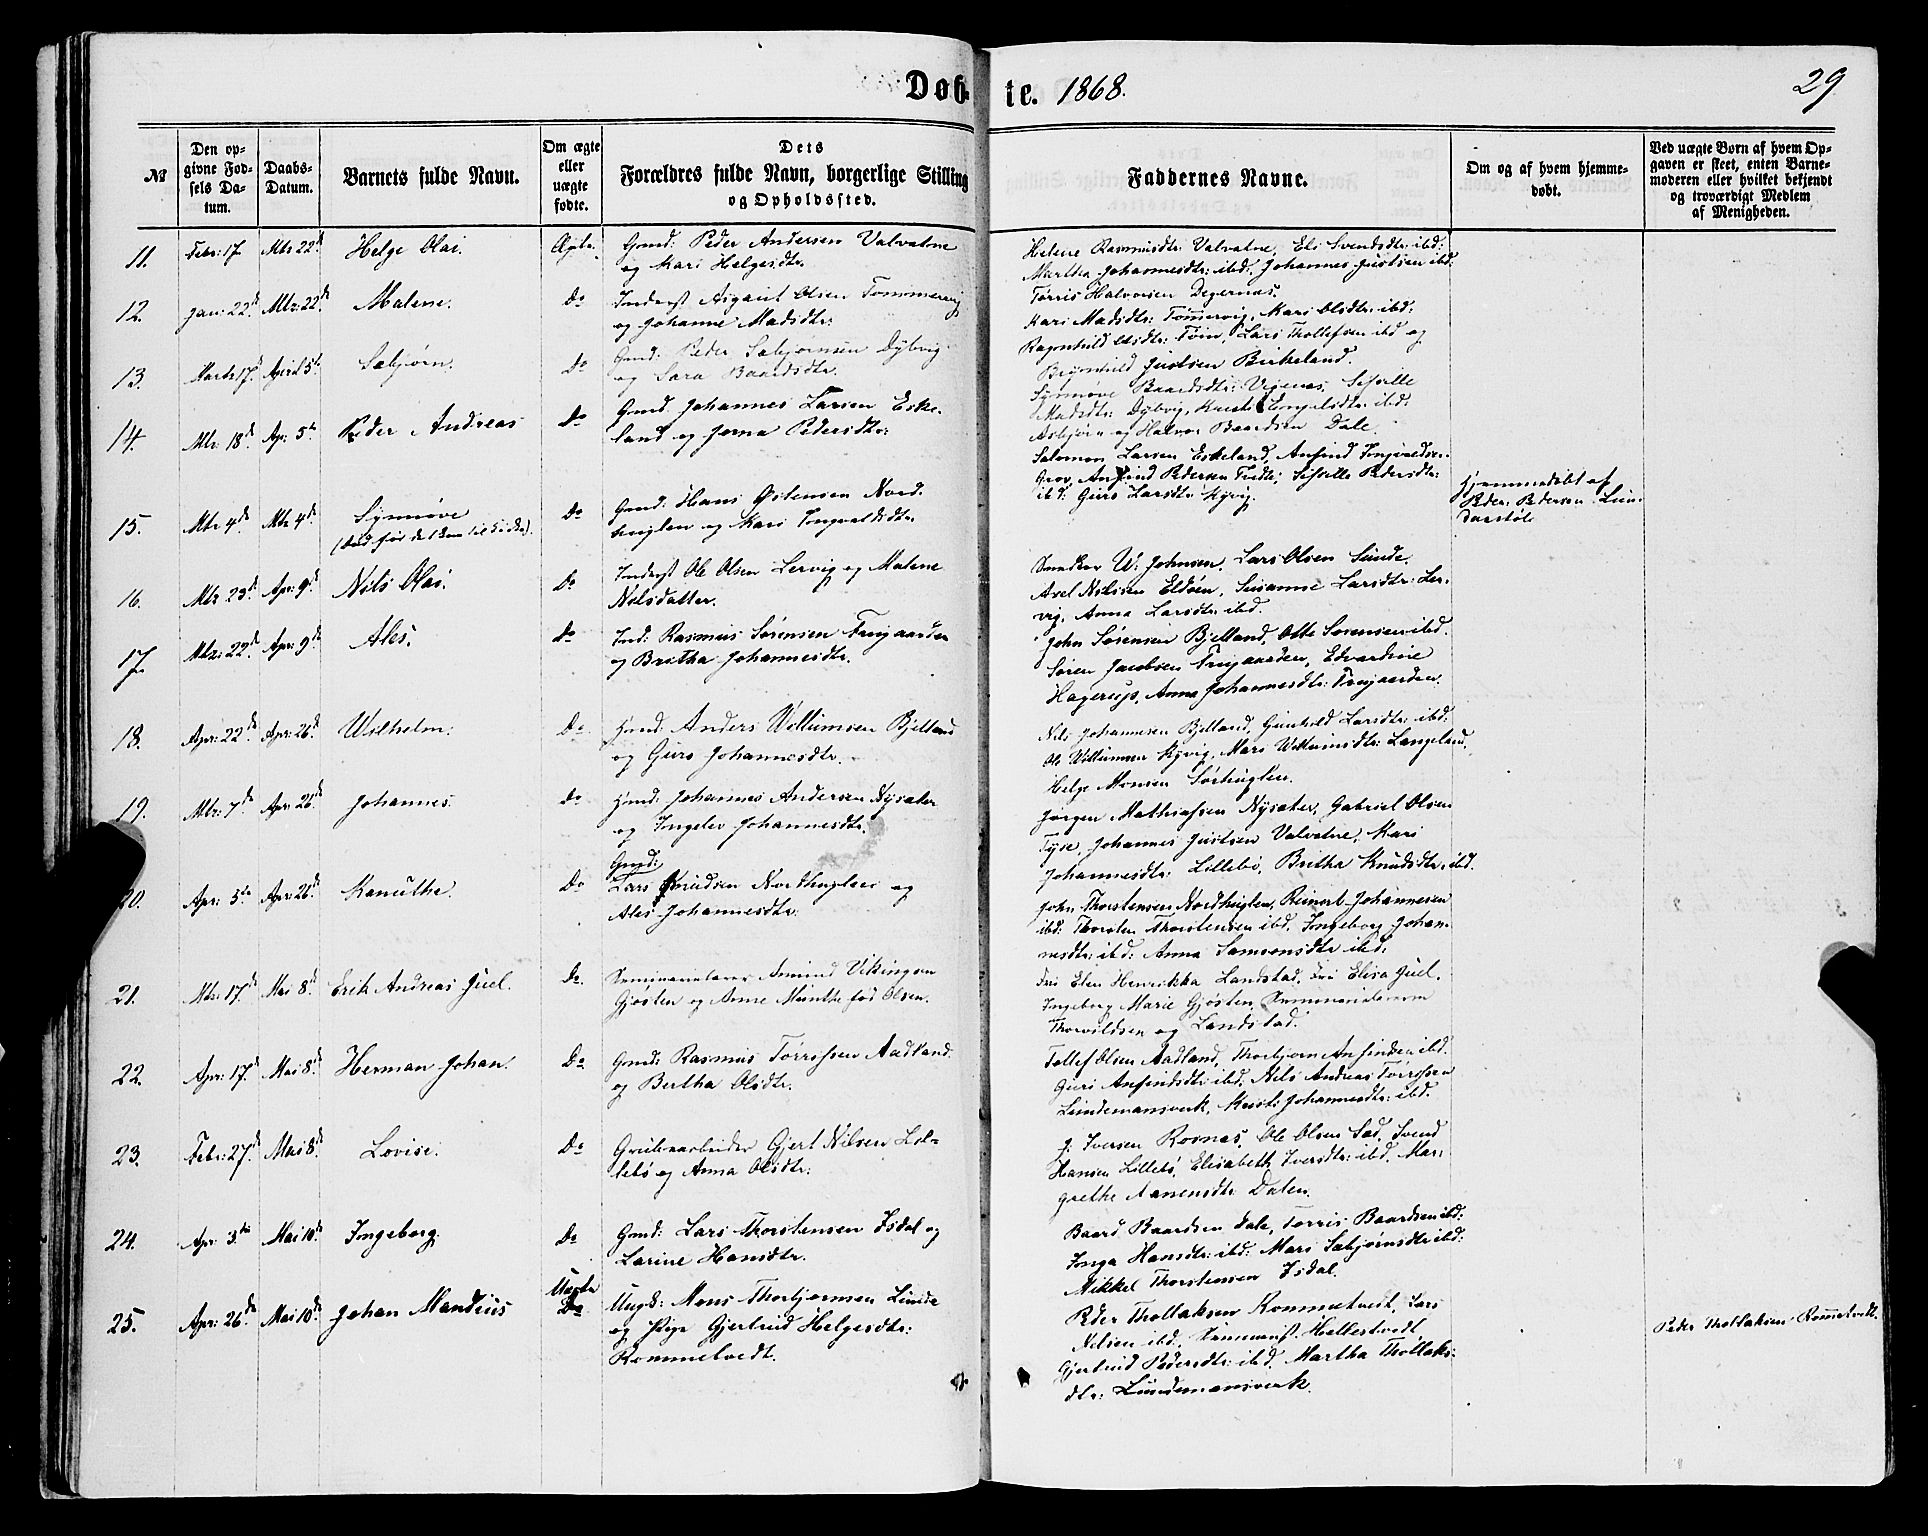 Døbte. 1868.
29
№
Den op-
givne Fød-
sels Da-
tum.
Daabs-
Datum.
Barnets fulde Navn.
Om ægte
eller
uægte
fødte.
Dets
Forældres fulde Navn, borgerlige Stilling
og Opholdssted.
Faddernes Navne.
Om og af hvem hjemme-
døbt.
Ved uægte Børn af hvem Op-
gaven er skeet, enten Barne-
moderen eller hvilket bekjendt
og troværdigt Medlem
af Menigheden.
11. Febr: 17 Mtz 22d Helge Olai. Ægte. Gmd: Peder Andersen Valvatne
og Kari Helgesdtr.
Helene Rasmusdtr: Valvatne, Eli Svendsdtr: ibd:
Martha Johannesdtr: ibd. Johannes Justsen ibd:
Tørris Halvorsen Degernæs.
12. Jan: 22d Mtz: 22d Malene. Do Inderst Asgaut Olsen Tømmervig
og Johanne Madsdtr:
Kari Madsdtr: Tømmervig, Kari Olsdtr: ibd:
Ragnhild Olsdtr: Tvin, Lars Thollefsen ibd og
Brynhild Justsen Birkeland.
13. Marts 17d April 5te Sæbjørn. Do Gmd: Peder Sæbjørnsen Dybvig
og Sara Baardsdtr.
Synnøve Baardsdtr: Vejenæs, Sisselle
Madsdtr: Dybvig, Kristi Engelsdtr: ibd:
Asbjørn og Halvor Baardsen Dale
14. Mtz: 18d Apr: 5te Peder Andreas Do Gmd. Johannes Larsen Eske-
land og Jorna Pedersdtr:
Salomon Larsen Eskeland, Anfind Ingvaldsen
Grov, Anfind Pedersen Tvedte, Sisselle Pedersdtr:
ibd: Guro Larsdtr: Kyvig.
15. Mtz 4d Mtz 4d Synnøve Do Gmd: Hans Østensen Nord-
huglen og Kari Ingvaldsdtr.
Hjemmedøbt af
Peder Pedersen Lun-
daastøl
16. Mtz 23d Apr: 9d Nils Olai. Do Inderst Ole Olsen Lervig og Malene
Nilsdatter.
Snedker W. Johnsen. Lars Olsen Sunde.
Axel Nilssen Eldøen, Susanne Larsdtr: Ler-
vig, Anna Larsdtr: ibd.
17. Mtz: 22d Apr: 9d Ales. Do Ind: Rasmus Sørensen Trugaarden
og Britha Johannesdtr.
John Sørensen Bjelland, Otte Sørensen ibd.
Søren Jacobsen Trugaarden, Edvardine
Hagerup, Anna Johannesdtr: Trugaarden.
18. Apr: 22d Apr: 26d Wilhelm. Do Gmd: Anders Willumsen Bjelland
og Guro Johannesdtr.
Nils Johannesen Bjelland, Gunhild Larsdtr: ibd:
Ole Willumsen Kyvig, Mari Willumsdtr: Langeland,
Helge Monsen Sørhuglen.
19. Mtz: 7d Apr: 26d Johannes. do Gmd: Johannes Andersen Nysæter
og Ingelev Johannesdtr.
Jørgen Mathiassen Nysæter, Gabriel Olsen
Tyse, Johannes Justsen Valvatne, Kari
Johannesdtr: Lillebø, Britha Knudsdtr: ibd.
20. Apr: 5te Apr: 26d Kanuthe. Do Gmd:
Lars Knudsen Nordhuglen og
Ales Johannesdtr:
John Thorstensen Nordhuglen, Reinert Johannesen
ibd: Thorsten Thorstensen ibd. Ingeborg Johan-
nesdtr: ibd: Anna Samsonsdtr ibd:
21. Mtz: 17d Mai 8d Erik Andreas Juel. Do Seminarielærer Amund Vikingsen
Gjøsten og Anne Munthe fød Olsen.
Fru Elen Henrikka Landstad, Fru Elisa Juel.
Ingeborg Marie Gjøsten, Seminarielærerne
Thorvildsen og Landstad.
22. Apr: 17d Mai 8d Herman Johan. Do Gmd: Rasmus Tørrissen Aadland
og Bertha Olsdtr.
Tollef Olsen Aadland, Thorbjørn Anfindsen ibd.
Guri Anfindsdtr: ibd. Nils Andreas Tørrissen
Lundemansverk, Kristi Johannesdtr: ibd.
23. Febr: 27d Mai 8d Lovise. Do Grubearbeider Gjert Nilsen Lil-
lebø og Anna Olsdtr:
J: Iversen Rosnæs, Ole Olsen Sad, Svend
Hansen Lillebø, Elisabeth Iversdtr: ibd. Mar-
grethe Aanensdtr: Dalen.
24. Apr 3die Mai 10d Ingeborg Do Gmd: Lars Thorstensen Isdal og
Larine Hansdtr.
Baard Baardsen Dale, Tørris Baardsen ibd:
Inga Hansdtr: ibd: Mari Sæbjørnsdtr ibd:
Mikkel Thorstensen Isdal.
25. Apr: 26d Mai 10d Johan Mandius Uægte
Do Ungk: Mons Thorbjørnsen Lunde
og Pige Gjertrud Helgesdtr:
Rommetvedt.
Peder Thollaksen Rommetvedt, Lars
Nilsen ibd. Seminarist Hellestvedt
Gjertrud Pedersdtr: ibd. Martha Thollaks-
dtr: Lundemansverk.
Peder Thollaksen Rommetvedt.